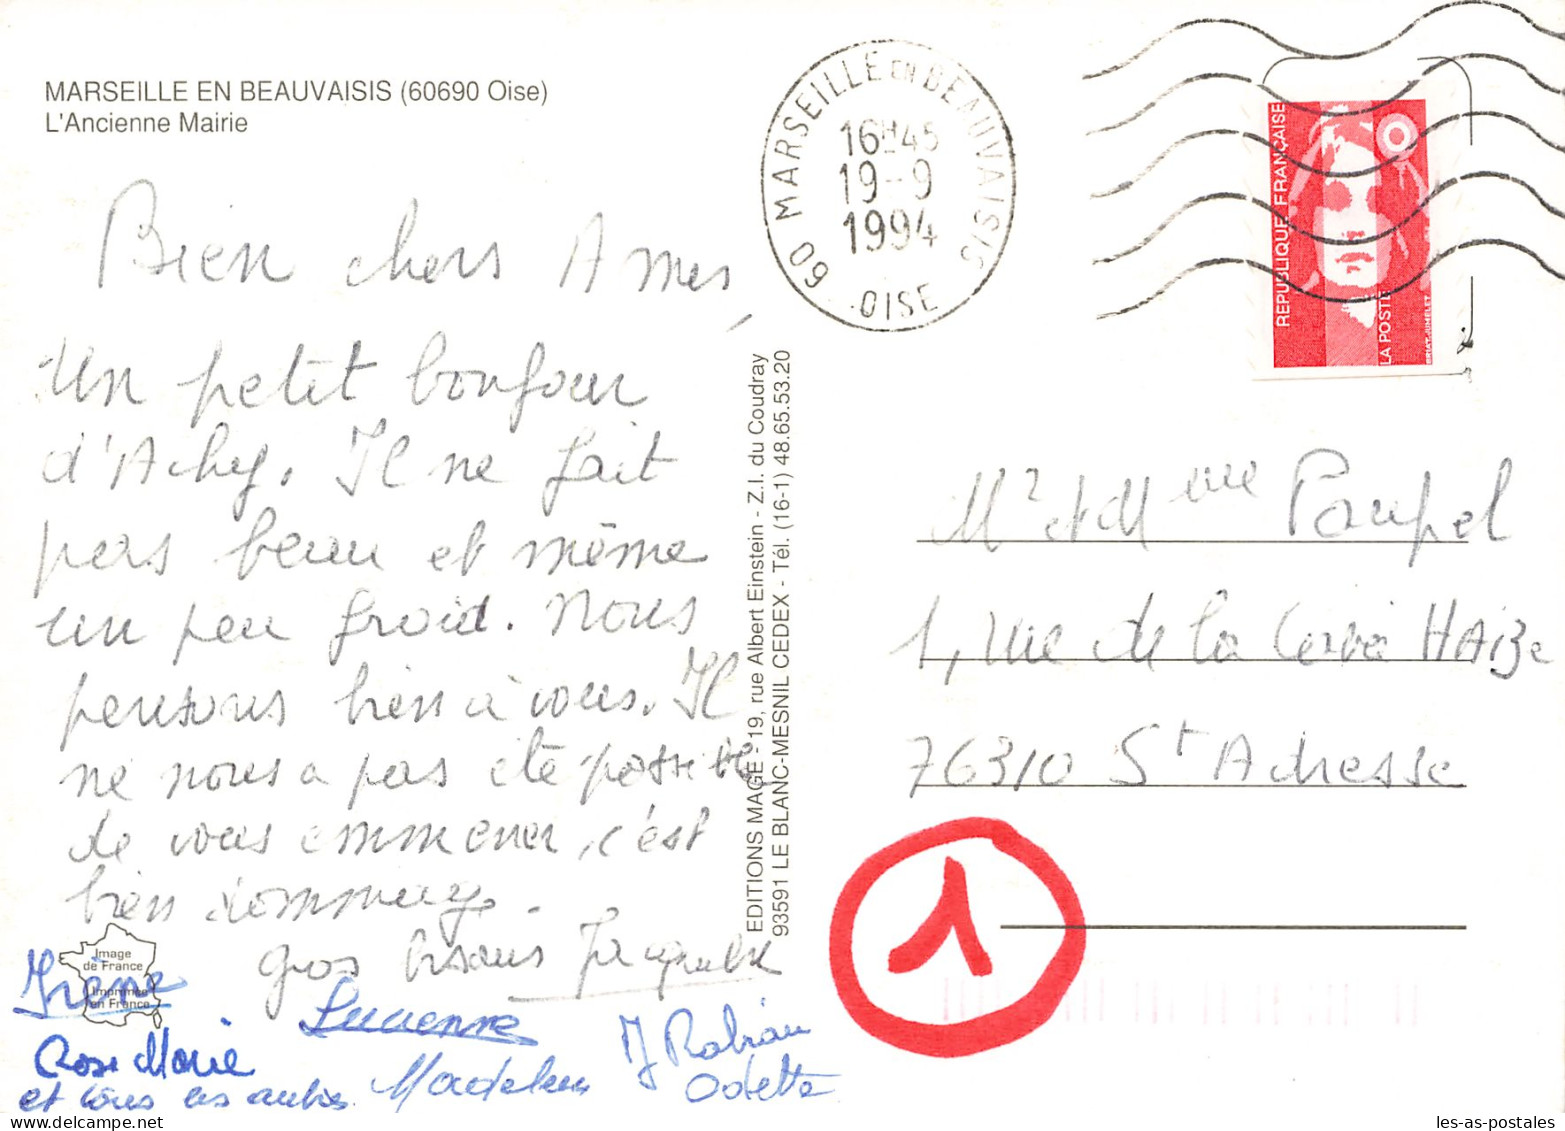 MARSEILLE EN BEAUVAISIS (60690 Oise)
L'Ancienne Mairie
Bien chers Amis,
Un petit bonjour
d'Achy. Il ne fait
pas beau et même
un peu froid. Nous
pensons bien à vous. Il
ne nous a pas été possible
de vous emmener, c'est
bien dommage.
gros bisous Jacqueline
Irène
Lucienne
Rose Marie
et tous les autres
Madeleine
Odette
Image
de France
Imprimée
en France
EDITIONS MAGE - 19, rue Albert Einstein - Z.I. du Coudray
93591 LE BLANC-MESNIL CEDEX - Tél. (16-1) 48.65.53.20
60 MARSEILLE EN BEAUVAISIS
16H45
19-9
1994
OISE
REPUBLIQUE FRANÇAISE
LA POSTE
Mr et Mme Paupel
1, rue de la
76310 St Adresse
1
les-as-postales